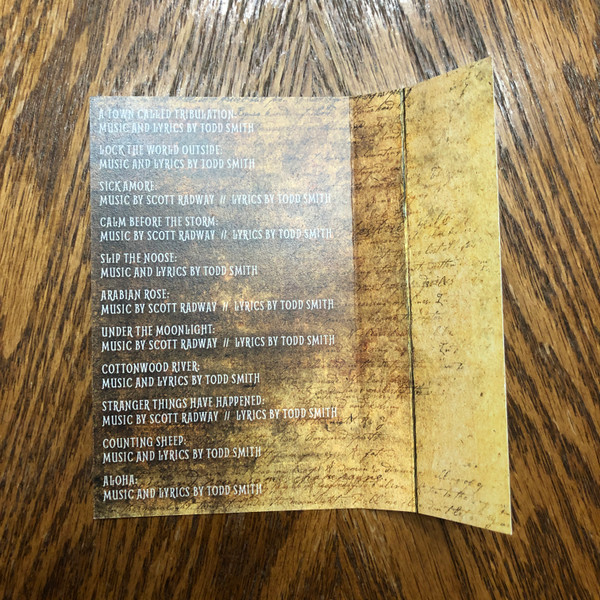 A TOWN CALLED TRIBULATION:
MUSIC AND LYRICS BY TODD SMITH
LOCK THE WORLD OUTSIDE:
MUSIC AND LYRICS BY TODD SMITH
SICK AMORE:
MUSIC BY SCOTT RADWAY // LYRICS BY TODD SMITH
CALM BEFORE THE STORM:
MUSIC BY SCOTT RADWAY // LYRICS BY TODD SMITH
SLIP THE NOOSE:
MUSIC AND LYRICS BY TODD SMITH
ARABIAN ROSE:
MUSIC BY SCOTT RADWAY // LYRICS BY TODD SMITH
UNDER THE MOONLIGHT:
MUSIC BY SCOTT RADWAY // LYRICS BY TODD SMITH
COTTONWOOD RIVER:
MUSIC AND LYRICS BY TODD SMITH
STRANGER THINGS HAVE HAPPENED:
MUSIC BY SCOTT RADWAY // LYRICS BY TODD SMITH
COUNTING SHEEP:
MUSIC AND LYRICS BY TODD SMITH
ALOHA:
MUSIC AND LYRICS BY TODD SMITH